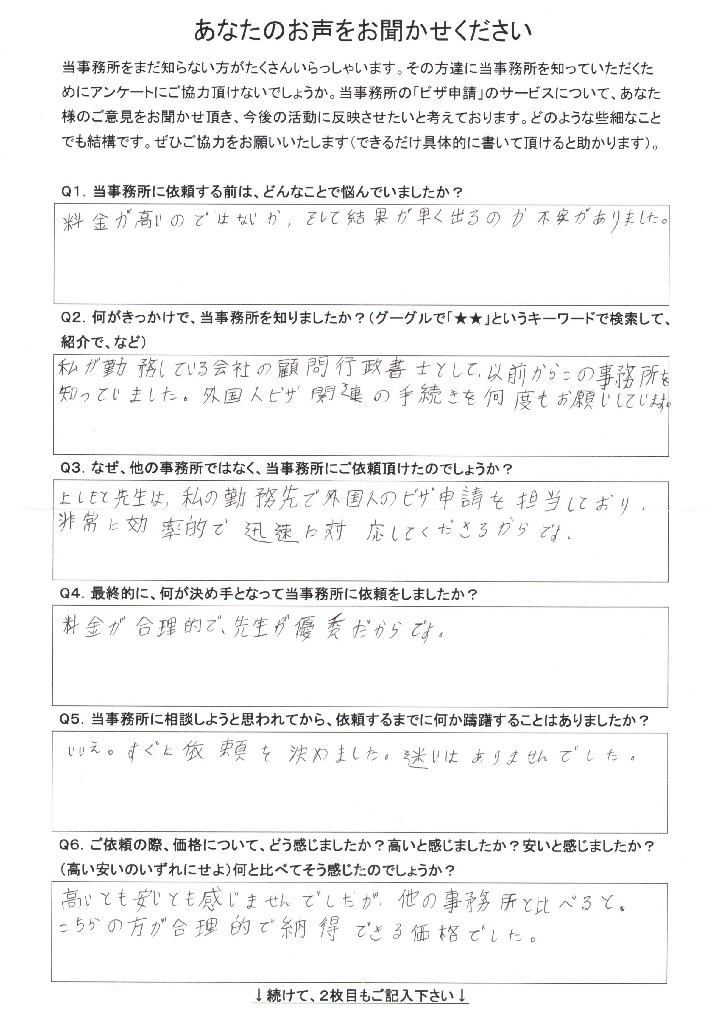 あなたのお声をお聞かせください
当事務所をまだ知らない方がたくさんいらっしゃいます。その方達に当事務所を知っていただくた
めにアンケートにご協力頂けないでしょうか。当事務所の「ビザ申請」のサービスについて、あなた
様のご意見をお聞かせ頂き、今後の活動に反映させたいと考えております。どのような些細なこと
でも結構です。ぜひご協力をお願いいたします（できるだけ具体的に書いて頂けると助かります）。
Q1．当事務所に依頼する前は、どんなことで悩んでいましたか？
料金が高いのではないか，そして結果が早く出るのか不安がありました。
Q2．何がきっかけで、当事務所を知りましたか？（グーグルで「★★」というキーワードで検索して、
紹介で、など）
私が勤務している会社の顧問行政書士として，以前からこの事務所を
知っていました。外国人ビザ関連の手続きを何度もお願いしています。
Q3．なぜ、他の事務所ではなく、当事務所にご依頼頂けたのでしょうか？
先生は，私の勤務先で外国人のビザ申請を担当しており，
非常に効率的で迅速に対応してくださるからです．
Q4．最終的に、何が決め手となって当事務所に依頼をしましたか？
料金が合理的で、先生が優秀だからです。
Q5．当事務所に相談しようと思われてから、依頼するまでに何か躊躇することはありましたか？
いいえ。すぐに依頼を決めました。迷いはありませんでした。
Q6．ご依頼の際、価格について、どう感じましたか？高いと感じましたか？安いと感じましたか？
（高い安いのいずれにせよ）何と比べてそう感じたのでしょうか？
高いとも安いとも感じませんでしたが，他の事務所と比べると。
こちらの方が合理的で納得できる価格でした。
↓続けて、2枚目もご記入下さい↓